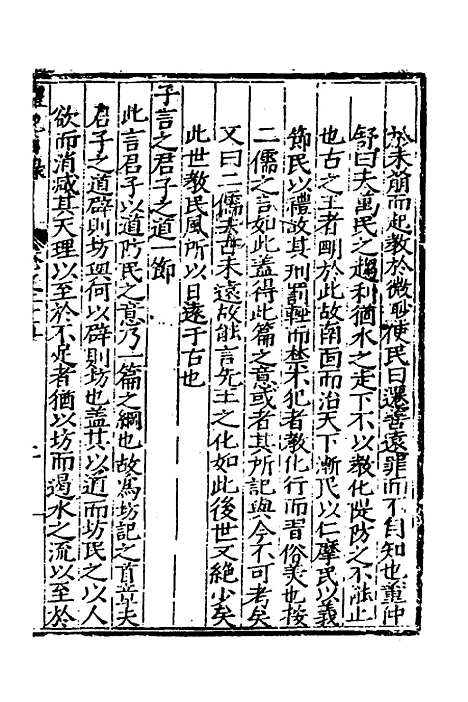 於未萌而起教於微眇使民日遷善遠罪而不自知也董仲
舒曰夫萬民之趨利猶水之走下不以教化隄防之不能止
也古之王者明於此故南面而治天下漸民以仁摩民以義
節民以禮故其刑罰輕而禁不犯者教化行而習俗美也按
二儒之言如此蓋得此篇之意或者其所記與今不可考矣
又曰二儒去古未遠故能言先王之化如此後世又絶少矣
此世教民風所以日遠于古也
子言之君子之道一節
此言君子以道防民之意乃一篇之綱也故為坊記之首章夫
君子之道辟則坊與何以辟則坊也蓋其以道而坊民之以人
欲而消滅其天理以至於不足者猶以坊而遏水之流以至於